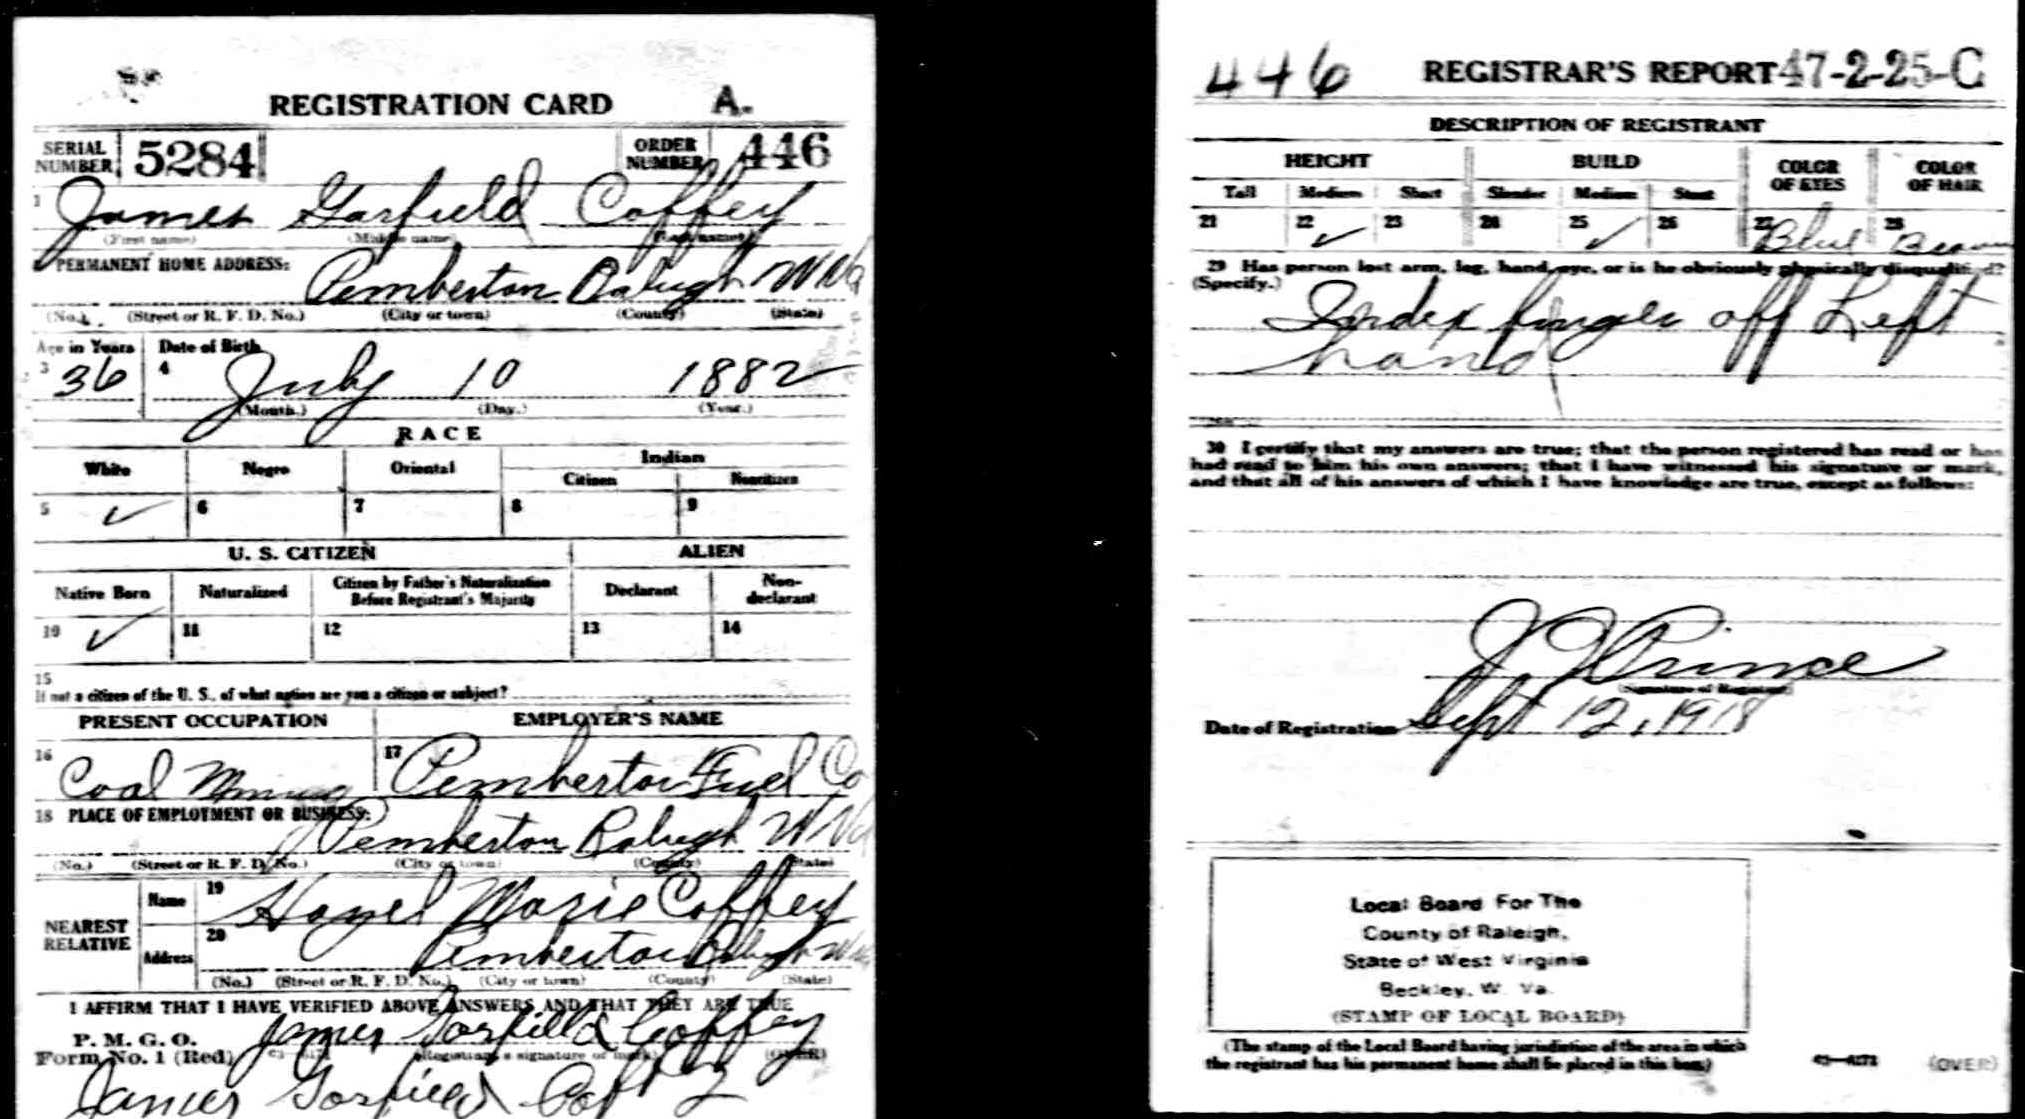 REGISTRATION CARD A.
SERIAL NUMBER 5284 ORDER NUMBER 446
1 James Garfield Coffey
(First name) (Middle name) (Last name)
PERMANENT HOME ADDRESS:
Pemberton Raleigh W Va
(No.) (Street or R. F. D. No.) (City or town) (County) (State)
Age in Years Date of Birth
3 36 4 July 10 1882
(Month.) (Day.) (Year.)
RACE
White Negro Oriental Indian
Citizen Noncitizen
5 ✓ 6 7 8 9
U. S. CITIZEN ALIEN
Native Born Naturalized Citizen by Father's Naturalization Before Registrant's Majority Declarant Non-declarant
10 ✓ 11 12 13 14
15
If not a citizen of the U. S., of what nation are you a citizen or subject?
PRESENT OCCUPATION EMPLOYER'S NAME
16 Coal Mining 17 Pemberton Fuel Co
18 PLACE OF EMPLOYMENT OR BUSINESS:
Pemberton Raleigh W Va
(No.) (Street or R. F. D. No.) (City or town) (County) (State)
NEAREST RELATIVE
Name 19 Hazel Marie Coffey
Address 20 Pemberton Raleigh W Va
(No.) (Street or R. F. D. No.) (City or town) (County) (State)
I AFFIRM THAT I HAVE VERIFIED ABOVE ANSWERS AND THAT THEY ARE TRUE
P. M. G. O.
Form No. 1 (Red) James Garfield Coffey
(Registrant's signature or mark) (OVER)
James Garfield Coffey
446 REGISTRAR'S REPORT 47-2-25-C
DESCRIPTION OF REGISTRANT
HEIGHT BUILD COLOR OF EYES COLOR OF HAIR
Tall Medium Short Slender Medium Stout
21 22 ✓ 23 24 25 ✓ 26 27 Blue 28 Brown
29 Has person lost arm, leg, hand, eye, or is he obviously physically disqualified?
(Specify.)
Index finger off Left
hand
30 I certify that my answers are true; that the person registered has read or has
had read to him his own answers; that I have witnessed his signature or mark,
and that all of his answers of which I have knowledge are true, except as follows:
J J Prince
(Signature of Registrar)
Date of Registration Sept 12, 1918
Local Board For The
County of Raleigh,
State of West Virginia
Beckley, W. Va.
(STAMP OF LOCAL BOARD)
(The stamp of the Local Board having jurisdiction of the area in which
the registrant has his permanent home shall be placed in this box.)
(OVER)